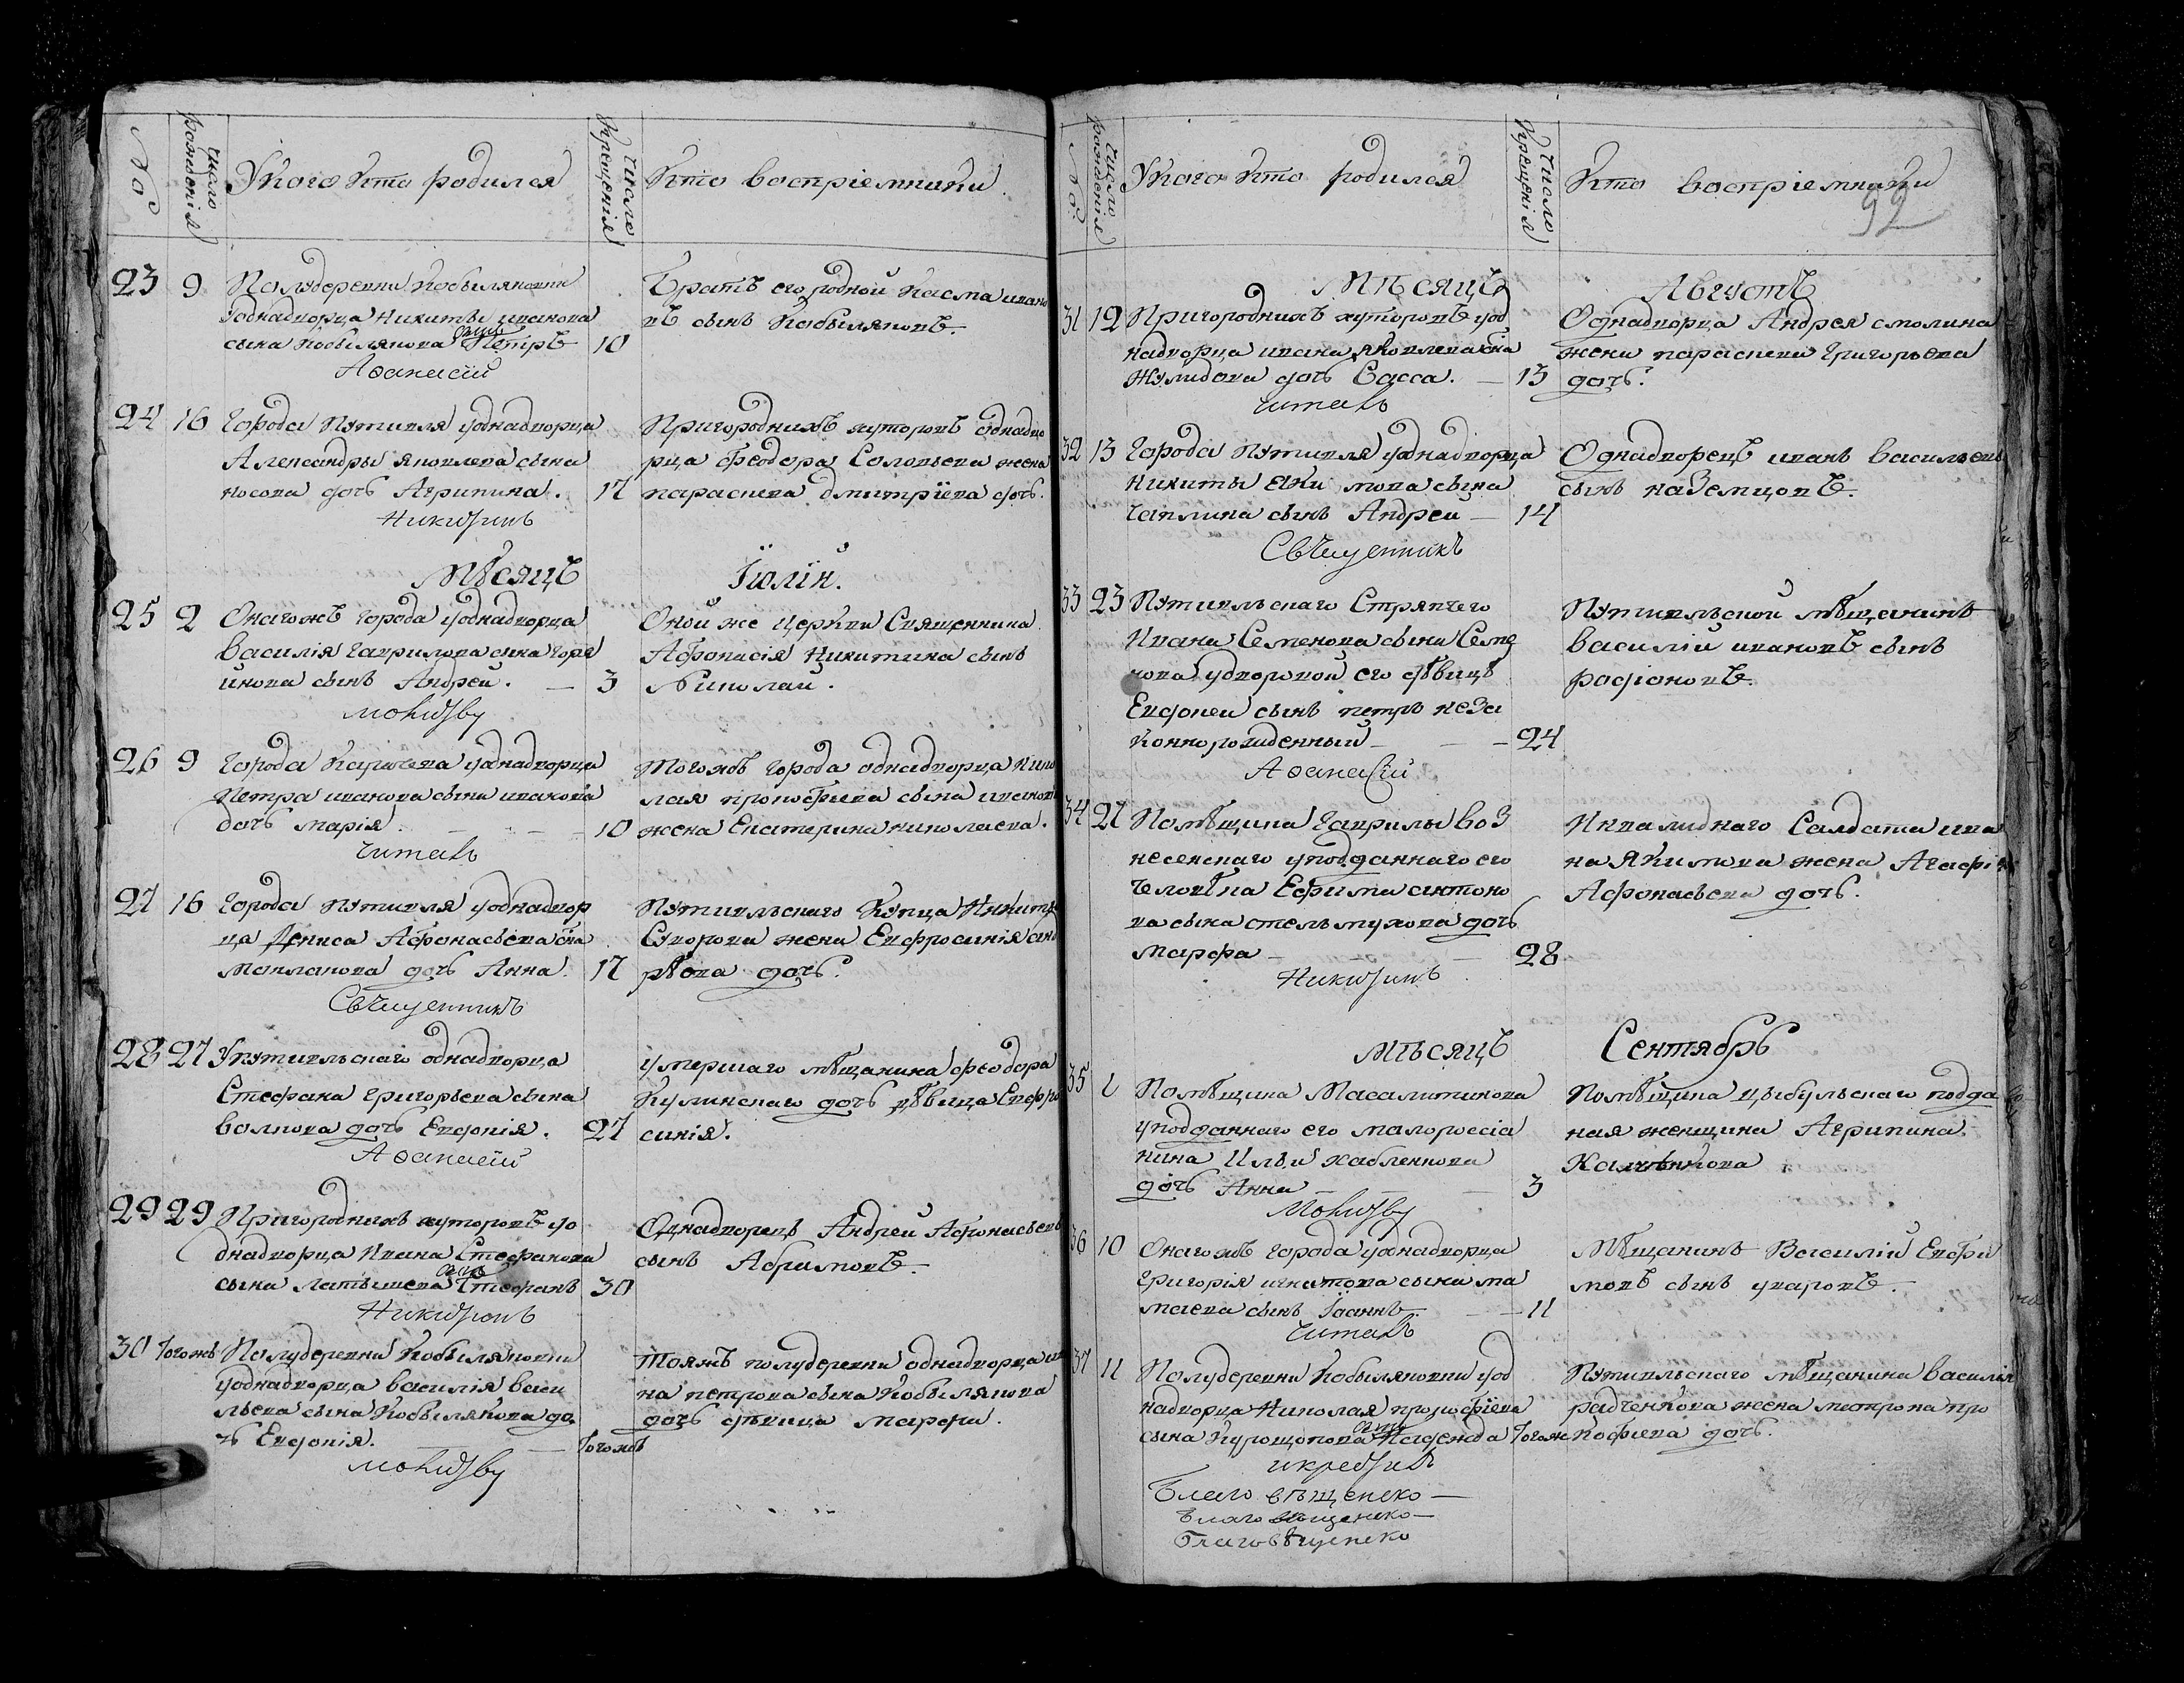 №
число рожденія
Укого кто родился
число крещенія
Кто воспріемники
23 9 Полудеревни Кобылякини
Уоднадворца Никиты иванова
сына кобылякова сынъ Петръ 10
Афанасій
Братъ его родной Касма ивано
въ сынъ Кобыляковъ
24 16 Города путивля уоднадворца
Александры яковлева сына
носова дочь Агрипина. 17
Никитинъ
Пригороднихъ хуторовъ однадво
рца Феодора Соловьева жена
параскева дмитріева дочь.
Мѣсяцъ Іюлій.
25 2 Онагожъ города уоднадворца
василія гаврилова сына горя
инова сынъ Андрей. 3
молитву
Оной же церкви Священника
Афонасія Никитина сынъ
Николай.
26 9 Города Карачева уоднадворца
Петра иванова сына иванова
дочь марія. 10
читалъ
Тогожъ города однадворца нико
лая прокофіева сына иванова
жена Екатерина николаева.
27 16 Города путивля уоднадвор
ца Дениса Афонасьева сна
Маклакова дочь Анна. 17
Свѧщенникъ
Путивльскаго Купца Никиты
Суворова жена Евфросинія анд
рѣева дочь.
28 27 Упутивльскаго однадворца
Стефана григорьева сына
волкова дочь Евдокія. 27
Афанасій
умершаго мѣщанина феодора
Кулинскаго дочь дѣвица Евфро
синія.
29 29 Пригороднихъ хуторовъ уо
днадворца Ивана Стефанова
сына латышева сынъ Стефанъ 30
Никитинъ
Однадворецъ Андрей Афонасьевъ
сынъ Абримовъ
30 Тогожъ Полудеревни Кобылякини
уоднадворца василія васи
льева сына Кобылякова до
чь Евдокія. Тогожъ
молитву
Тояжъ полудеревни однадворца ива
на петрова сына Кобылякова
дочь дѣвица марфа.
№
число рожденія
Укого Кто родился
число крещенія
Кто воспріемники
92
Мѣсяцъ Августъ
31 12 Пригороднихъ хуторовъ уод
надворца ивана яковлева сна
Жулидова дочь Васса. 13
читалъ
Однадворца Андрея смолина
жена параскева григорьева
дочь.
32 13 Города путивля уоднадворца
никиты еки мова сына
чаплина сынъ Андрей 14
Свѧщенникъ
Однадворецъ иванъ васильевъ
сынъ наземцовъ.
33 23 Путивльскаго Стряпчего
Ивана Семенова сына Семе
нова удворовой его дѣвицѣ
Евдокеи сынъ петръ неза
коннорожденный 24
Афанасій
Путивльской мѣщенинъ
василій ивановъ сынъ
радіоновъ.
34 27 Помѣщика гаврилы воз
несенскаго уподданнаго его
человѣка Ефима антоно
ва сына стельмухова дочь
марфа 28
Никитинъ
Инвалиднаго Салдата ива
на Якимова жена Агафія
Афонасьева дочь.
мѣсяцъ Сентябрь
35 2 Помѣщика Масалитинова
уподданнаго его малороссія
нина Ильи хабленкова
дочь Анна 3
Молитву
помѣщика цыбульскаго подда
ная женщина Агрипина
Калѣнкова
36 10 Онагожъ города уоднадворца
григорія игнатова сына ма
маева сынъ Іоаннъ 11
читалъ
Мѣщанинъ Василій Евфи
мовъ сынъ уваровъ.
37 11 Полудеревни Кобылякини уод
надворца Николая прокофіева
сына Курощопова дочь Надежда Тогож
икрестилъ
Путивльскаго мѣщанина василія
радченкова жена матрона про
кофиева дочь.
Благовѣщенско
благовѣщенско
Благовѣщенско